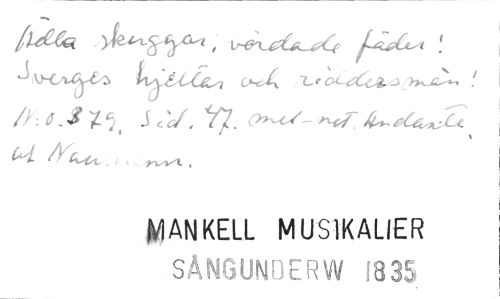 Ädla skuggor, vördade fäder!
Sverges hjeltar och riddersmän!
N:o 379. Sid. 47. mel-not. Andante.
af Naumann.
MANKELL MUSIKALIER
SÅNGUNDERW 1835